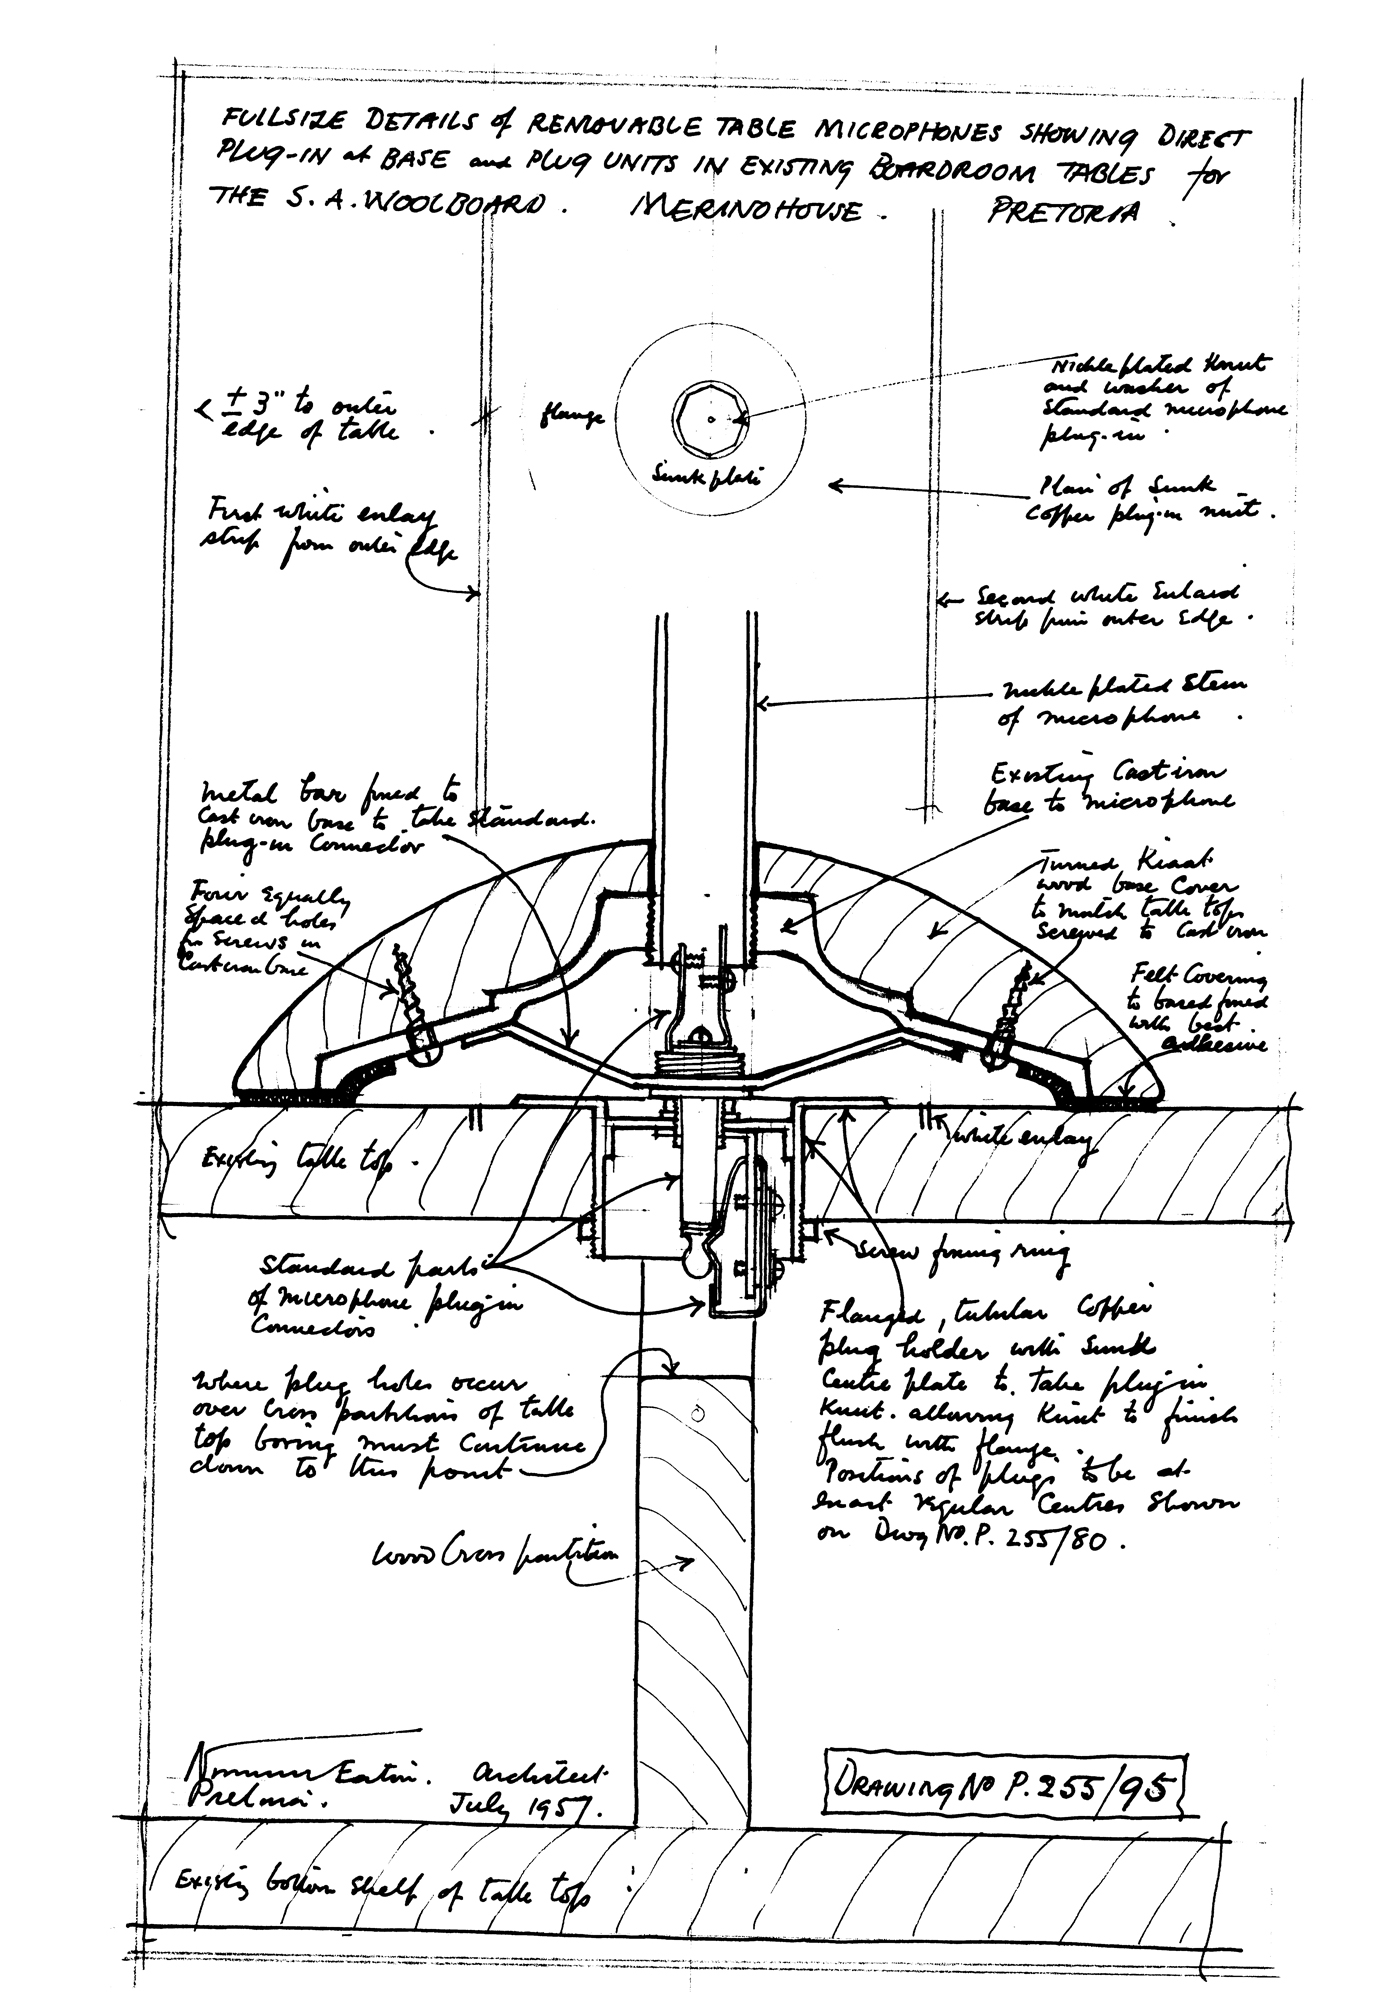 FULLSIZE DETAILS of REMOVABLE TABLE MICROPHONES SHOWING DIRECT
PLUG-IN at BASE and PLUG UNITS IN EXISTING BOARDROOM TABLES for
THE S.A. WOOLBOARD. MERINO HOUSE. PRETORIA.
± 3" to outer
edge of table.
flange
Sunk plate
Nickle plated Knut
and washer of
Standard microphone
plug-in
Plan of Sunk
Copper plug-in nut.
First white enlay
strip from outer edge
Second white Enlaid
strip from outer Edge.
Nickle plated Stem
of microphone.
Existing Cast iron
base to microphone
Metal bar fixed to
Cast iron base to take standard.
plug-in Connector
Four Equally
Spaced holes
for Screws in
Cast iron base
Turned Kiaat
wood base Cover
to match table tops
Screwed to Cast iron
Felt Covering
to base fixed
with best
adhesive
Existing table top.
White enlay
Screw fixing ring
Standard parts
of microphone plug-in
Connectors
Flanged, tubular Copper
plug holder with Sunk
Centre plate to take plug-in
Knut. allowing Knut to finish
flush with flange.
Positions of plugs to be at
exact regular Centres Shown
on Dwg No. P. 255/80.
Where plug holes occur
over Cross partitions of table
top boring must Continue
down to this point
Wood Cross partition
Norman Eaton. Architect
Pretoria. July 1957.
DRAWING No P. 255/95
Existing bottom shelf of table tops